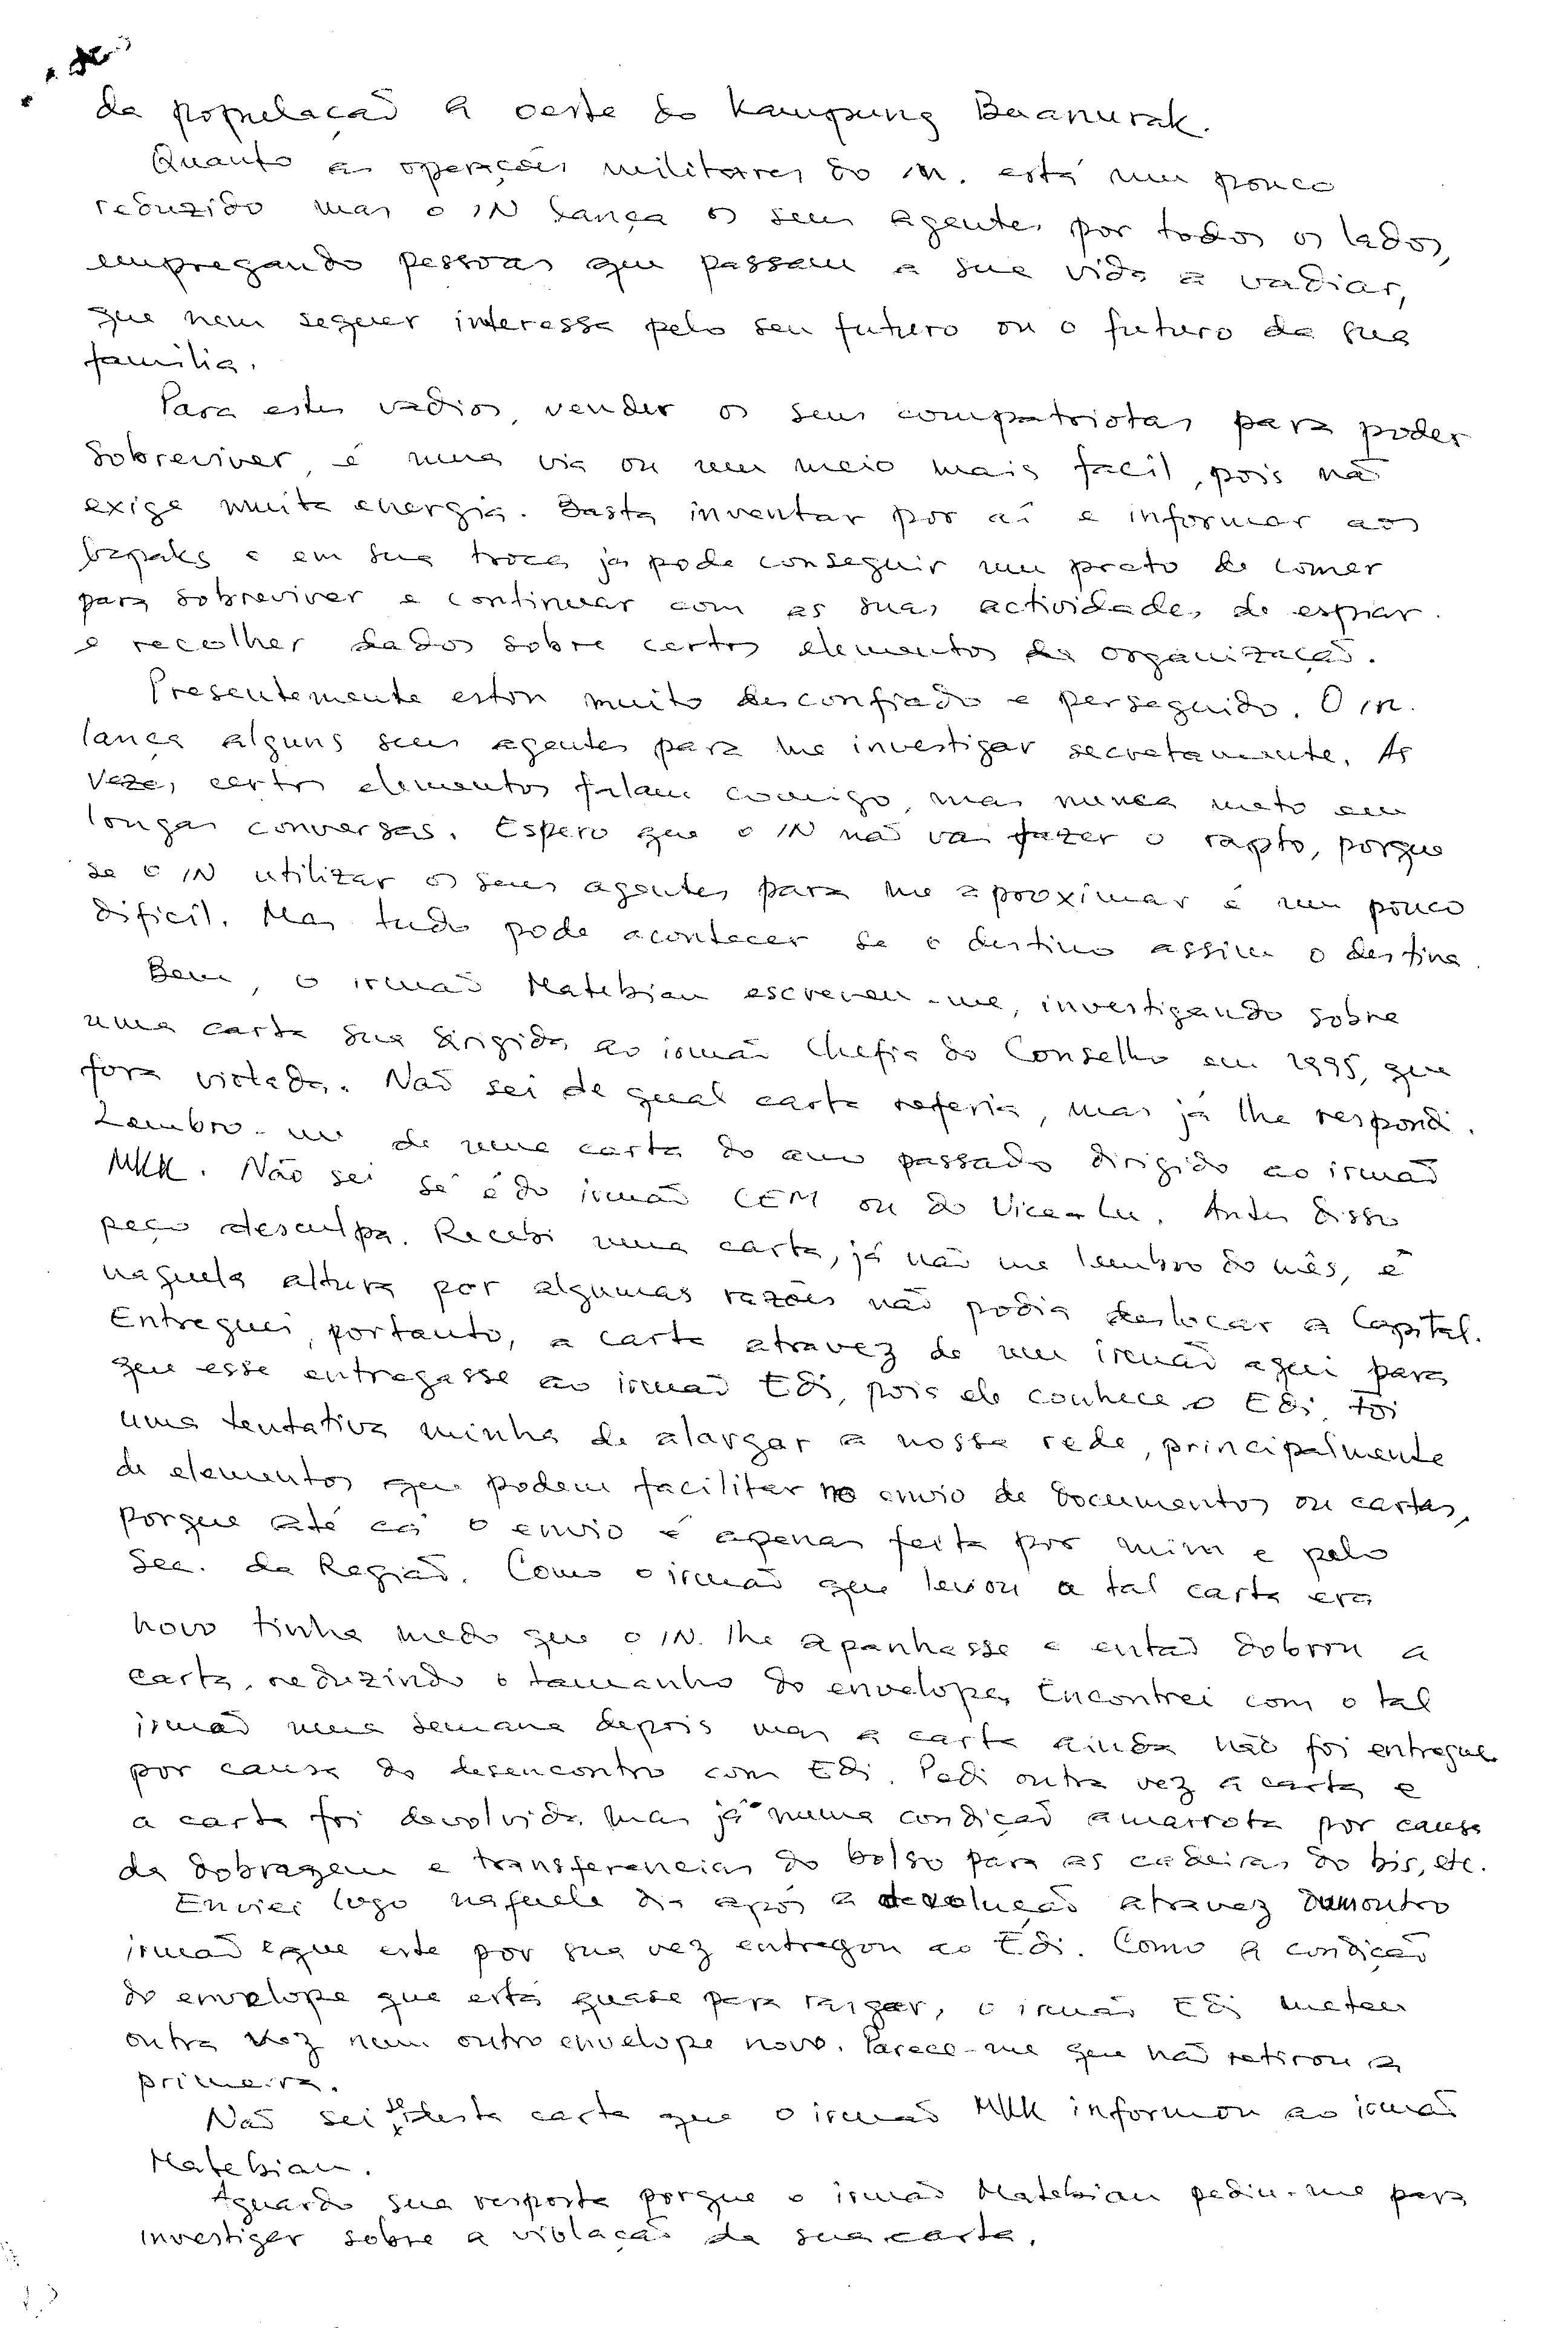 da populaçaõ a oeste do Kampung Buanurak.
Quanto as operações militares do IN. está um pouco
reduzido mas o IN lança os seus agentes por todos os lados,
empregando pessoas que passam a sua vida a vadiar,
que nem sequer interessa pelo seu futuro ou o futuro da sua
familia.
Para estes vadios, vender os seus compatriotas para poder
sobreviver, é uma via ou um meio mais facil, pois naõ
exige muita energia. Basta inventar por aí e informar aos
bapaks e em sua troca já pode conseguir um prato de comer
para sobreviver e continuar com as suas actividades de espiar
e recolher dados sobre certos elementos da organizaçaõ.
Presentemente estou muito desconfiado e perseguido. O IN.
lança alguns seus agentes para me investigar secretamente. As
vezes certos elementos falam comigo, mas nunca meto em
longas conversas. Espero que o IN naõ vai fazer o rapto, porque
se o IN utilizar os seus agentes para me aproximar é um pouco
dificil. Mas tudo pode acontecer se o destino assim o destina.
Bem, o irmaõ Matebian escreveu-me, investigando sobre
uma carta sua dirigida ao irmaõ Chefia do Conselho em 1995, que
fora violada. Naõ sei de qual carta referia, mas já lhe respondi.
Lembro-me de uma carta do ano passado dirigido ao irmaõ
MKK. Não sei se é do irmaõ CEM ou do Vice-Lu. Antes disso
peço desculpa. Recebi uma carta, já não me lembro do mês, e
naquela altura por algumas razões naõ podia deslocar a Capital.
Entreguei, portanto, a carta atravez de um irmaõ aqui para
que esse entregasse ao irmaõ Edi, pois ele conhece o Edi. Foi
uma tentativa minha de alargar a nossa rede, principalmente
de elementos que podem facilitar no envio de documentos ou cartas,
porque até cá o envio é apenas feita por mim e pelo
Sec. da Regiaõ. Como o irmaõ que levou a tal carta era
novo tinha medo que o IN. lhe apanhasse e entaõ dobrou a
carta, reduzindo o tamanho do envelope. Encontrei com o tal
irmaõ uma semana depois mas a carta ainda naõ foi entregue
por causa do desencontro com Edi. Pedi outra vez a carta e
a carta foi devolvida mas já numa condiçaõ amarrota por causa
da dobragem e transferencias do bolso para as cadeiras do bis, etc.
Enviei logo naquele dia após a devoluçaõ atravez dum outro
irmaõ e que este por sua vez entregou ao Edi. Como a condiçaõ
do envelope que está quase para rasgar, o irmaõ Edi meteu
outra vez num outro envelope novo. Parece-me que naõ retirou a
primeira.
Naõ sei se é desta carta que o irmaõ MKK informou ao irmaõ
Matebian.
Aguardo sua resposta porque o irmaõ Matebian pediu-me para
investigar sobre a violaçaõ da sua carta.